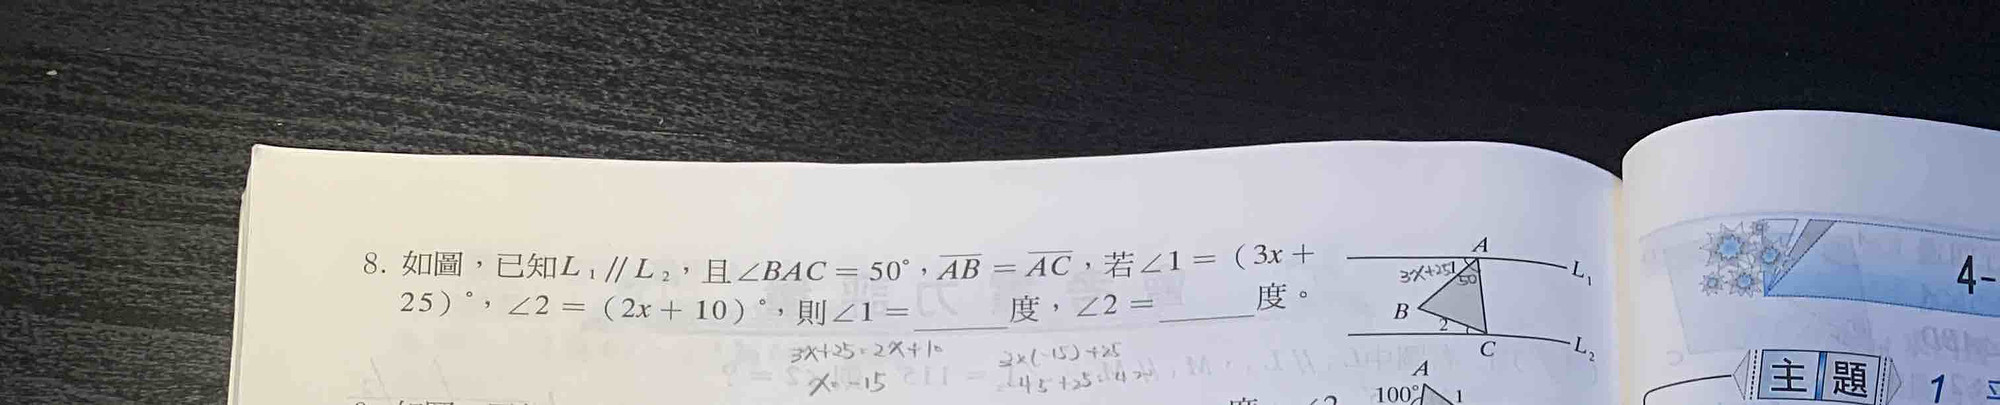 8. 如圖，已知L₁ // L₂，且∠BAC = 50°，AB = AC，若∠1 =（3x +
25）°，∠2 =（2x + 10）°，則∠1 = ______度，∠2 = ______度。
3x+25=2x+10
x=-15
A
L₁
3x+25
1
50
B
2
C
L₂
A
100°
1
4-
主題 1